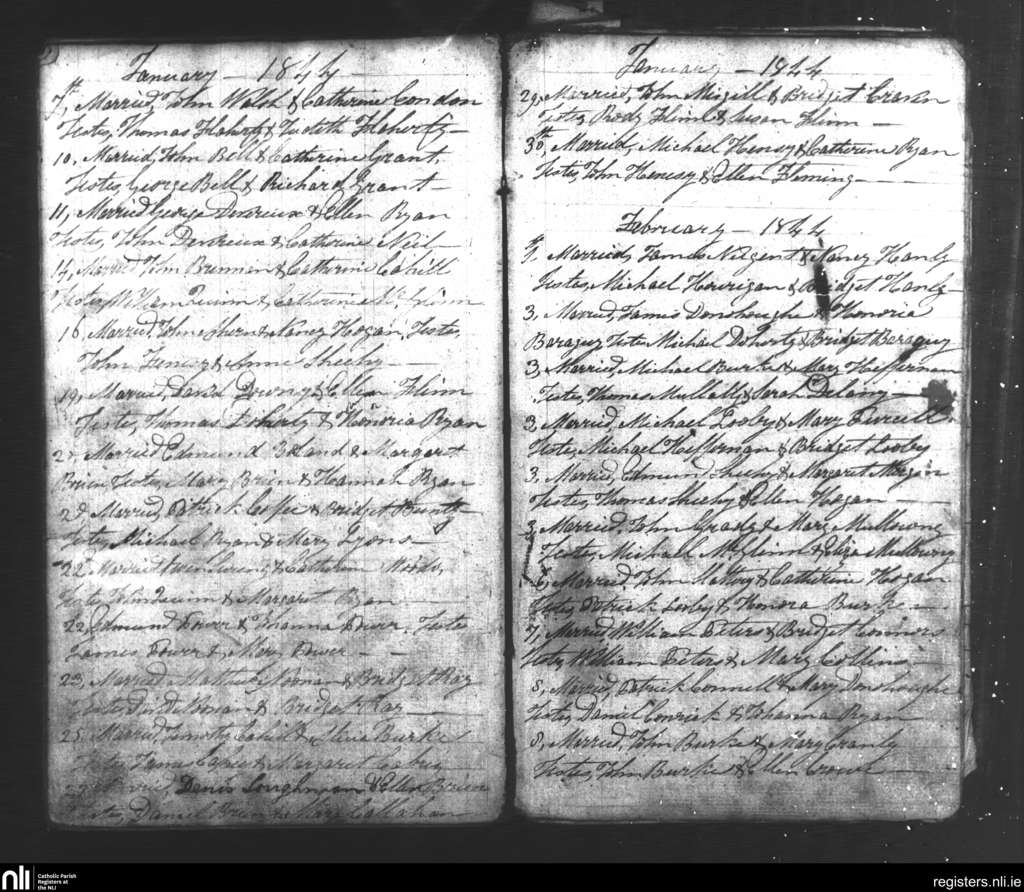 January - 1844
7th, Married, John Walsh & Catherine Condon
Testes, Thomas Flaherty & Judith Flaherty -
10, Married, John Bell & Catherine Grant,
Testes, George Bell & Richard Grant -
11, Married George Devereux & Ellen Ryan
Testes, John Devereux & Catherine Neil -
14, Married John Brennan & Catherine Cahill
Testes, William Quinn & Catherine
16, Married, John Ahern & Nancy Hogan, Testes,
John & Anne Sheehy -
19, Married, David Downy & Ellen Flinn
Testes, Thomas Doherty & Honoria Ryan
Married Edmund Boland & Margaret
Brien Testes, Mary Brien & Hannah Ryan
Married, Patrick & Bridget
Testes, Michael Ryan & Mary Lyons -
22 Married & Catherine Woods,
Testes, Quinn & Margaret Ryan -
22, Edmund Power & Johanna Power, Testes
James Power & Mary Power - -
23, Married Matthew & Bridget Ray
Testes & Bridget Ray -
25, Married, Timothy Cahill & Burke
Testes, James & Margaret
Denis Loughnan & Ellen Brien
Testes, Daniel Brien & Mary Callahan
January - 1844
29, Married, John & Bridget
Testes, Flinn & Susan Flinn -
30th, Married, Michael Henesy & Catherine Ryan
Testes, John Henesy & Ellen Fleming - -
February - 1844
1st Married, James Nugent & Nancy Hanly
Testes, Michael Hourigan & Bridget Hanly -
3, Married, James Donohoughe & Honoria
Baraguy Testes Michael Doherty & Bridget Baraguy
3, Married, Michael Burke & Mary Heffernan
Testes, Thomas Mullally & Sarah Delany -
3, Married, Michael Looby & Mary Purcell -
Testes, Michael Heffernan & Bridget Looby
3, Married, Edmund Sheehy & Margaret Hogan
Testes, Thomas Sheehy & Ellen Hogan -
3, Married, John Grady & Mary Mullowny
Testes, Michael McGlinn & Eliza Mullowny
6, Married John & Catherine Hogan
Testes, Patrick Looby & Honora Burke -
7, Married William Peters & Bridget Connors
Testes, William Peters & Mary Collins -
8, Married, Patrick Connell & Mary Donohoughe
Testes, Daniel & Johanna Ryan
8, Married, John Burke & Mary Cranly
Testes, John Burke & Ellen Crowe -
nli
Catholic Parish
Registers at
the NLI
registers.nli.ie